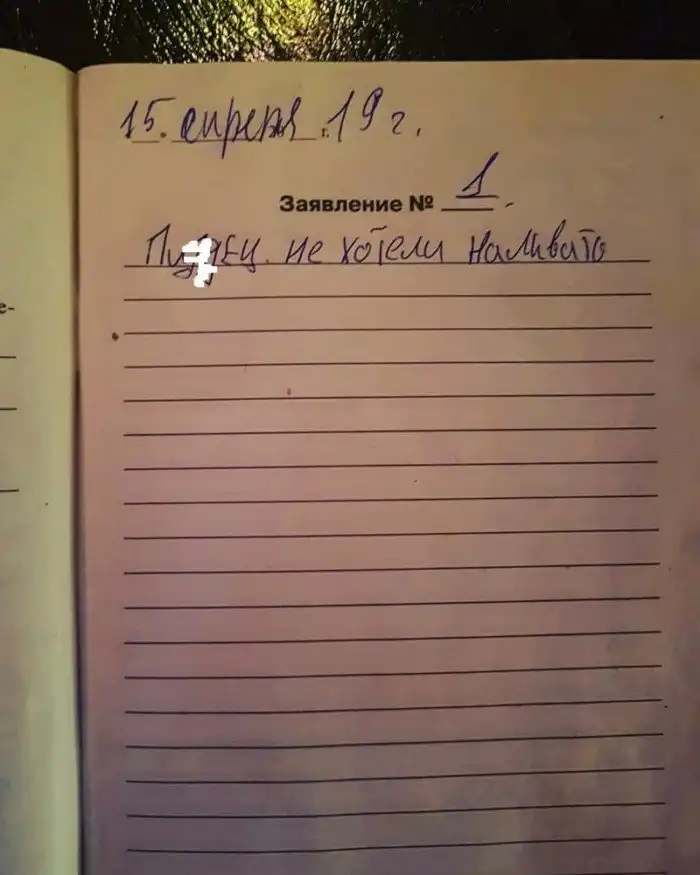 15. апреля г. 19 г.
Заявление № 1.
не хотели наливать
е-